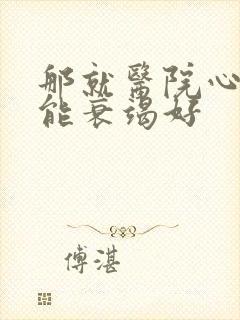 那就醫院心
能衰竭好
傅湛